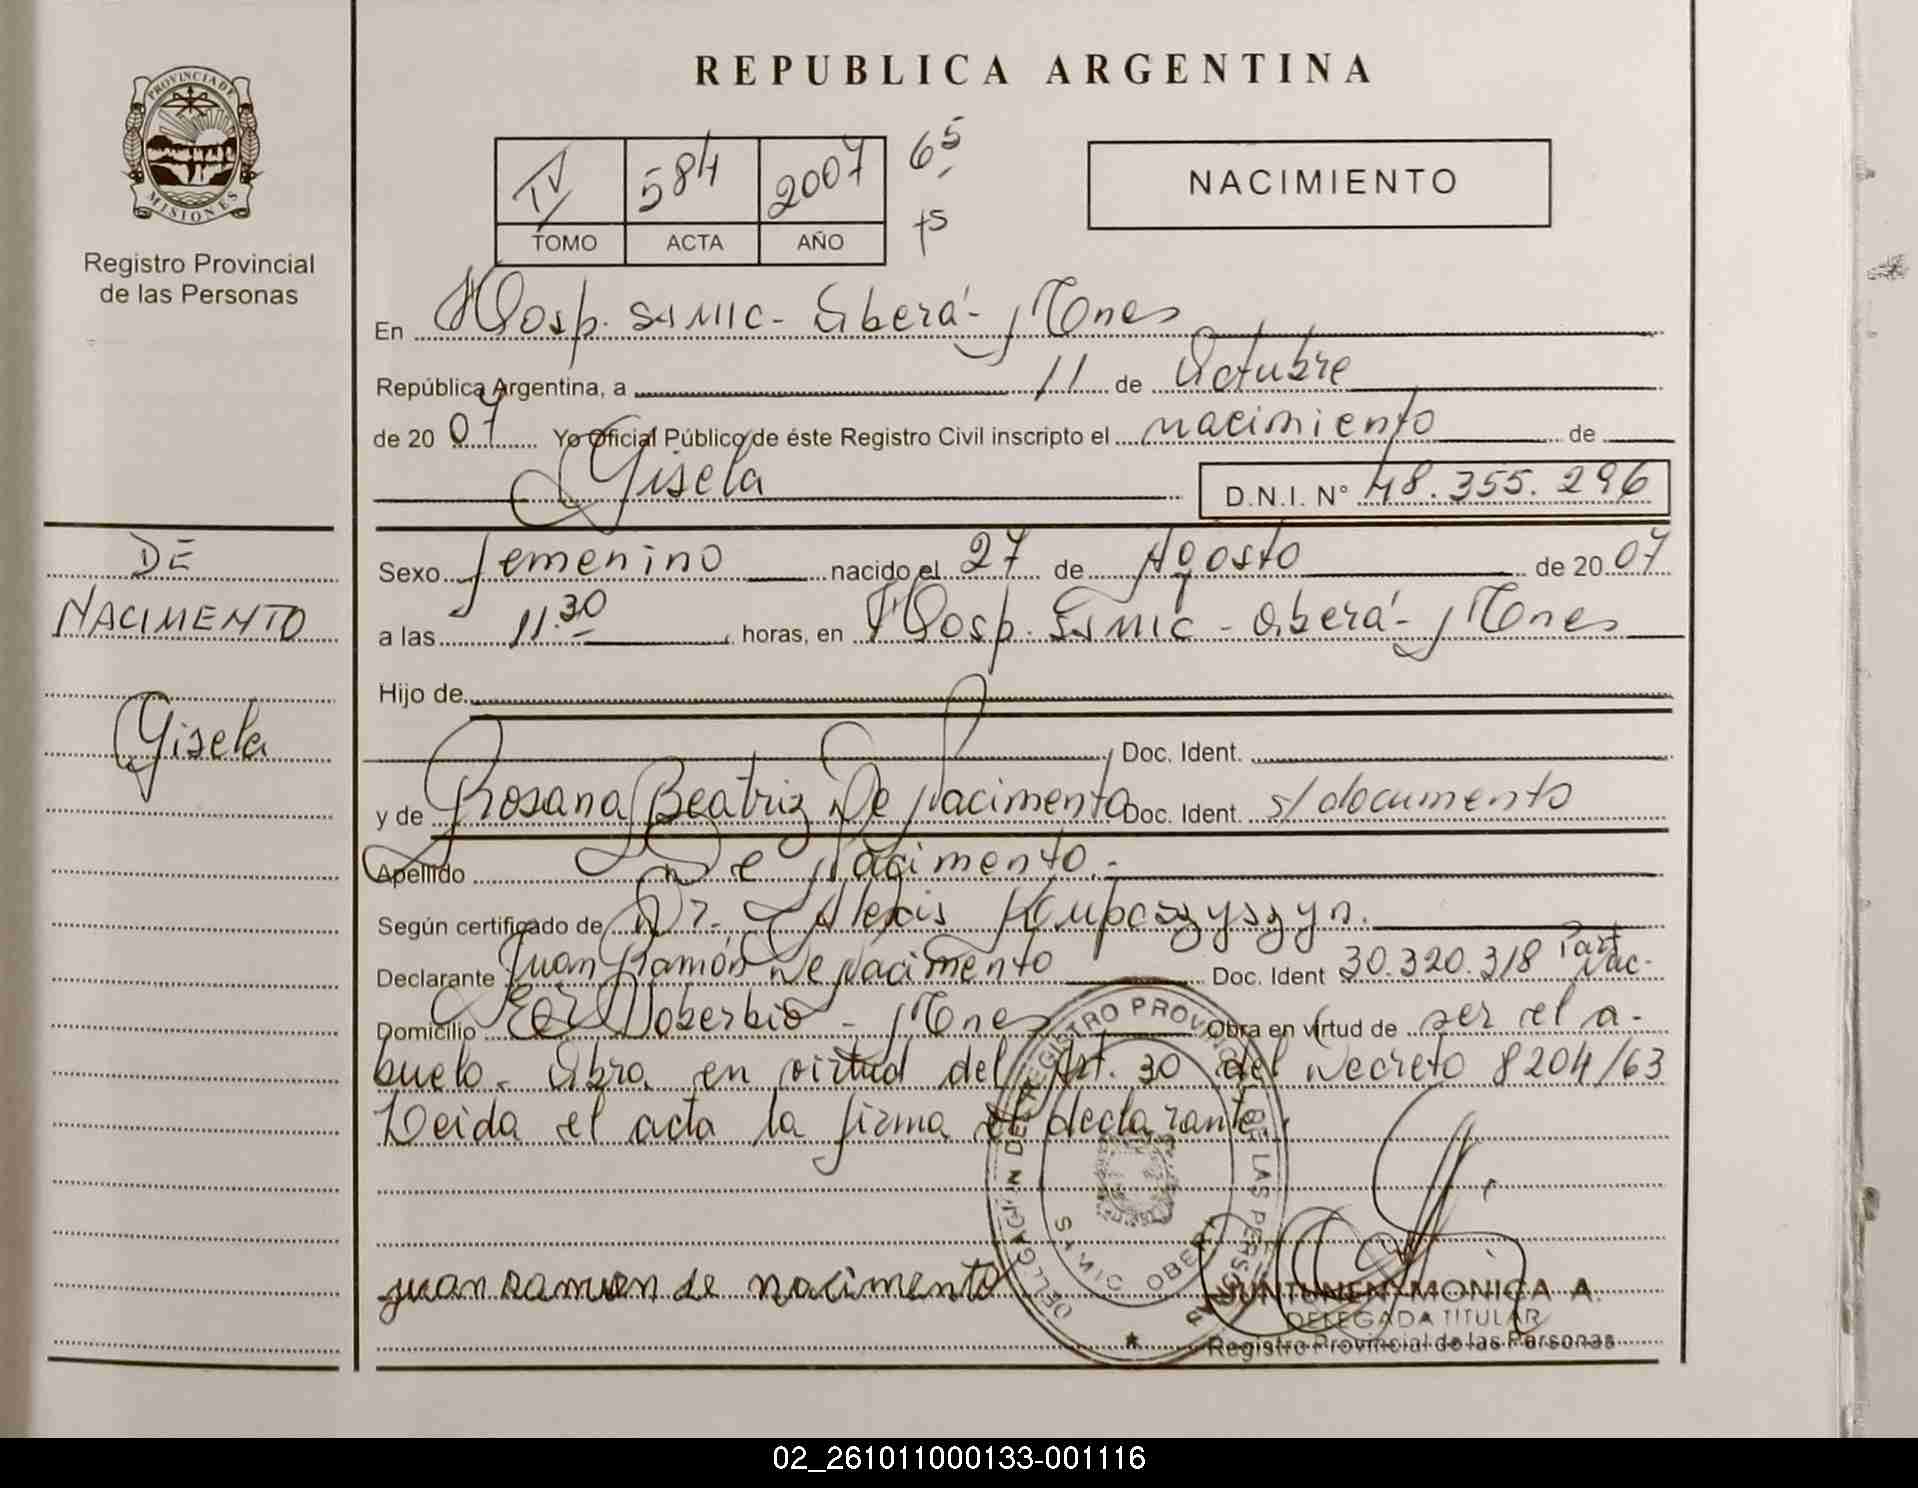 REPUBLICA ARGENTINA
PROVINCIA DE
MISIONES
Registro Provincial
de las Personas
IV 584 2007 65
TOMO ACTA AÑO 75
NACIMIENTO
En Hosp. SAMIC - Oberá - Mnes
República Argentina, a 11 de Octubre
de 20 07 Yo Oficial Público de éste Registro Civil inscripto el nacimiento de
Gisela D.N.I. N° 48.355.296
DE
NACIMENTO
Gisela
Sexo femenino nacido el 27 de Agosto de 20 07
a las 11.30 horas, en Hosp. SAMIC - Oberá - Mnes
Hijo de
Doc. Ident.
y de Rosana Beatriz De Nacimento Doc. Ident. s/documento
Apellido De Nacimento.-
Según certificado de Dr. Alexis
Declarante Juan Ramón De Nacimento Doc. Ident 30.320.318 Part Nac-
Domicilio El Soberbio - Mnes Obra en virtud de ser el a-
buelo. Obra en virtud del Art. 30 del Decreto 8204/63
Leida el acta la firma el declarante
juan ramon de nacimento
DELEGACION DEL REGISTRO PROVINCIAL DE LAS PERSONAS
SAMIC OBERA
JUNTUNEN MONICA A.
DELEGADA TITULAR
Registro Provincial de las Personas
02_261011000133-001116